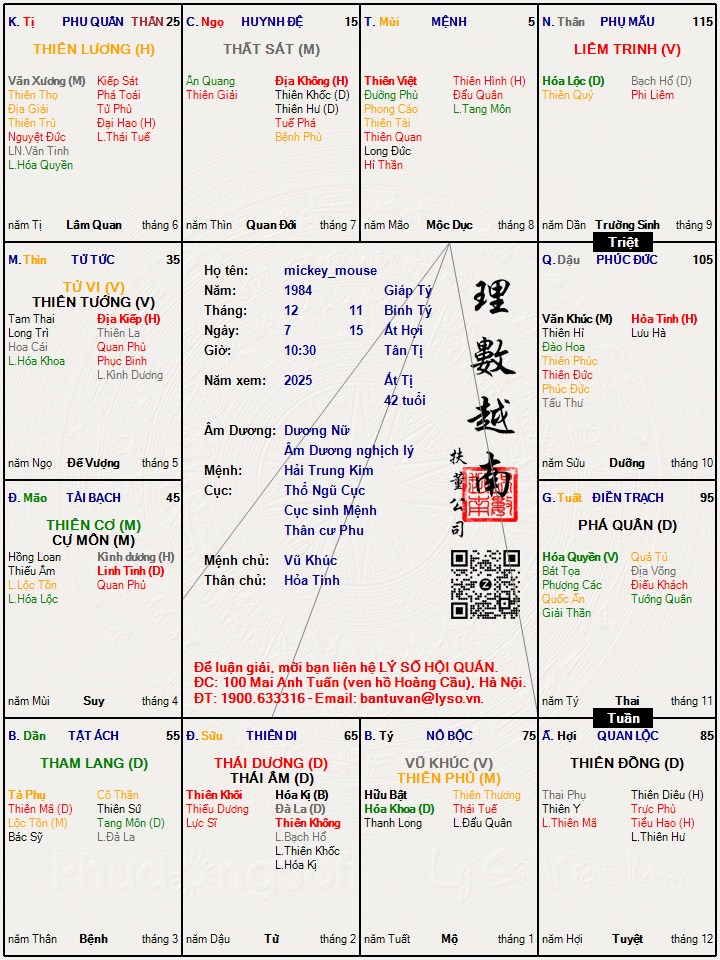 K. Tị PHU QUÂN THÂN 25
THIÊN LƯƠNG (H)
Văn Xương (M) Kiếp Sát
Thiên Thọ Phá Toái
Địa Giải Tử Phù
Thiên Trù Đại Hao (H)
Nguyệt Đức L.Thái Tuế
LN.Văn Tinh
L.Hóa Quyền
năm Tị Lâm Quan tháng 6
C. Ngọ HUYNH ĐỆ 15
THẤT SÁT (M)
Ân Quang Địa Không (H)
Thiên Giải Thiên Khốc (D)
Thiên Hư (D)
Tuế Phá
Bệnh Phù
năm Thìn Quan Đới tháng 7
T. Mùi MỆNH 5
Thiên Việt Thiên Hình (H)
Đường Phù Đẩu Quân
Phong Cáo L.Tang Môn
Thiên Tài
Thiên Quan
Long Đức
Hỉ Thần
năm Mão Mộc Dục tháng 8
N. Thân PHỤ MẪU 115
LIÊM TRINH (V)
Hóa Lộc (D) Bạch Hổ (D)
Thiên Quý Phi Liêm
năm Dần Trường Sinh tháng 9
Triệt
M. Thìn TỬ TỨC 35
TỬ VI (V)
THIÊN TƯỚNG (V)
Tam Thai Địa Kiếp (H)
Long Trì Thiên La
Hoa Cái Quan Phù
L.Hóa Khoa Phục Binh
L.Kình Dương
năm Ngọ Đế Vượng tháng 5
Họ tên: mickey_mouse
Năm: 1984 Giáp Tý
Tháng: 12 11 Bính Tý
Ngày: 7 15 Ất Hợi
Giờ: 10:30 Tân Tị
Năm xem: 2025 Ất Tị
42 tuổi
Âm Dương: Dương Nữ
Âm Dương nghịch lý
Mệnh: Hải Trung Kim
Cục: Thổ Ngũ Cục
Cục sinh Mệnh
Thân cư Phu
Mệnh chủ: Vũ Khúc
Thân chủ: Hỏa Tinh
理數越南
扶董公司
Để luận giải, mời bạn liên hệ LÝ SỐ HỘI QUÁN.
ĐC: 100 Mai Anh Tuấn (ven hồ Hoàng Cầu), Hà Nội.
ĐT: 1900.633316 - Email: bantuvan@lyso.vn.
Q. Dậu PHÚC ĐỨC 105
Văn Khúc (M) Hỏa Tinh (H)
Thiên Hỉ Lưu Hà
Đào Hoa
Thiên Phúc
Thiên Đức
Phúc Đức
Tấu Thư
năm Sửu Dưỡng tháng 10
Đ. Mão TÀI BẠCH 45
THIÊN CƠ (M)
CỰ MÔN (M)
Hồng Loan Kình dương (H)
Thiếu Âm Linh Tinh (D)
L.Lộc Tồn Quan Phủ
L.Hóa Lộc
năm Mùi Suy tháng 4
G. Tuất ĐIỀN TRẠCH 95
PHÁ QUÂN (D)
Hóa Quyền (V) Quả Tú
Bát Tọa Địa Võng
Phượng Các Điếu Khách
Quốc Ấn Tướng Quân
Giải Thần
năm Tý Thai tháng 11
Tuần
B. Dần TẬT ÁCH 55
THAM LANG (D)
Tả Phụ Cô Thần
Thiên Mã (D) Thiên Sứ
Lộc Tồn (M) Tang Môn (D)
Bác Sỹ L.Đà La
năm Thân Bệnh tháng 3
Đ. Sửu THIÊN DI 65
THÁI DƯƠNG (D)
THÁI ÂM (D)
Thiên Khôi Hóa Kị (B)
Thiếu Dương Đà La (D)
Lực Sĩ Thiên Không
L.Bạch Hổ
L.Thiên Khốc
L.Hóa Kị
năm Dậu Tử tháng 2
B. Tý NÔ BỘC 75
VŨ KHÚC (V)
THIÊN PHỦ (M)
Hữu Bật Thiên Thương
Hóa Khoa (D) Thái Tuế
Thanh Long L.Đẩu Quân
năm Tuất Mộ tháng 1
Ấ. Hợi QUAN LỘC 85
THIÊN ĐỒNG (D)
Thai Phụ Thiên Diêu (H)
Thiên Y Trực Phù
L.Thiên Mã Tiểu Hao (H)
L.Thiên Hư
năm Hợi Tuyệt tháng 12
Phudongsoft Lý Số Việt Nam